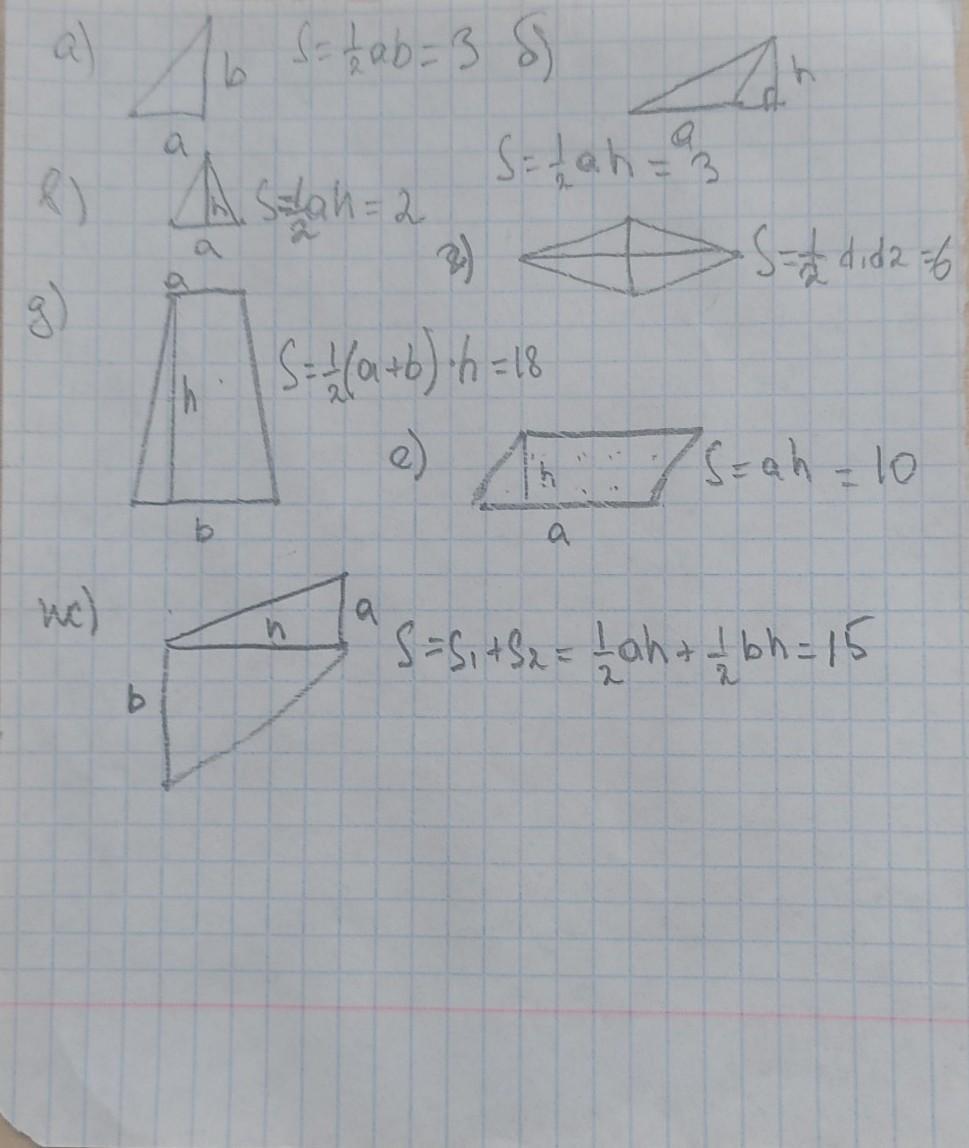 а) b S = 1/2 ab = 3
a
б) h
a
S = 1/2 ah = 3
в) h S = 1/2 ah = 2
a
г) S = 1/2 d1d2 = 6
д) a
h S = 1/2 (a+b) · h = 18
b
е) h S = ah = 10
a
ж) h a
b S = S1 + S2 = 1/2 ah + 1/2 bh = 15